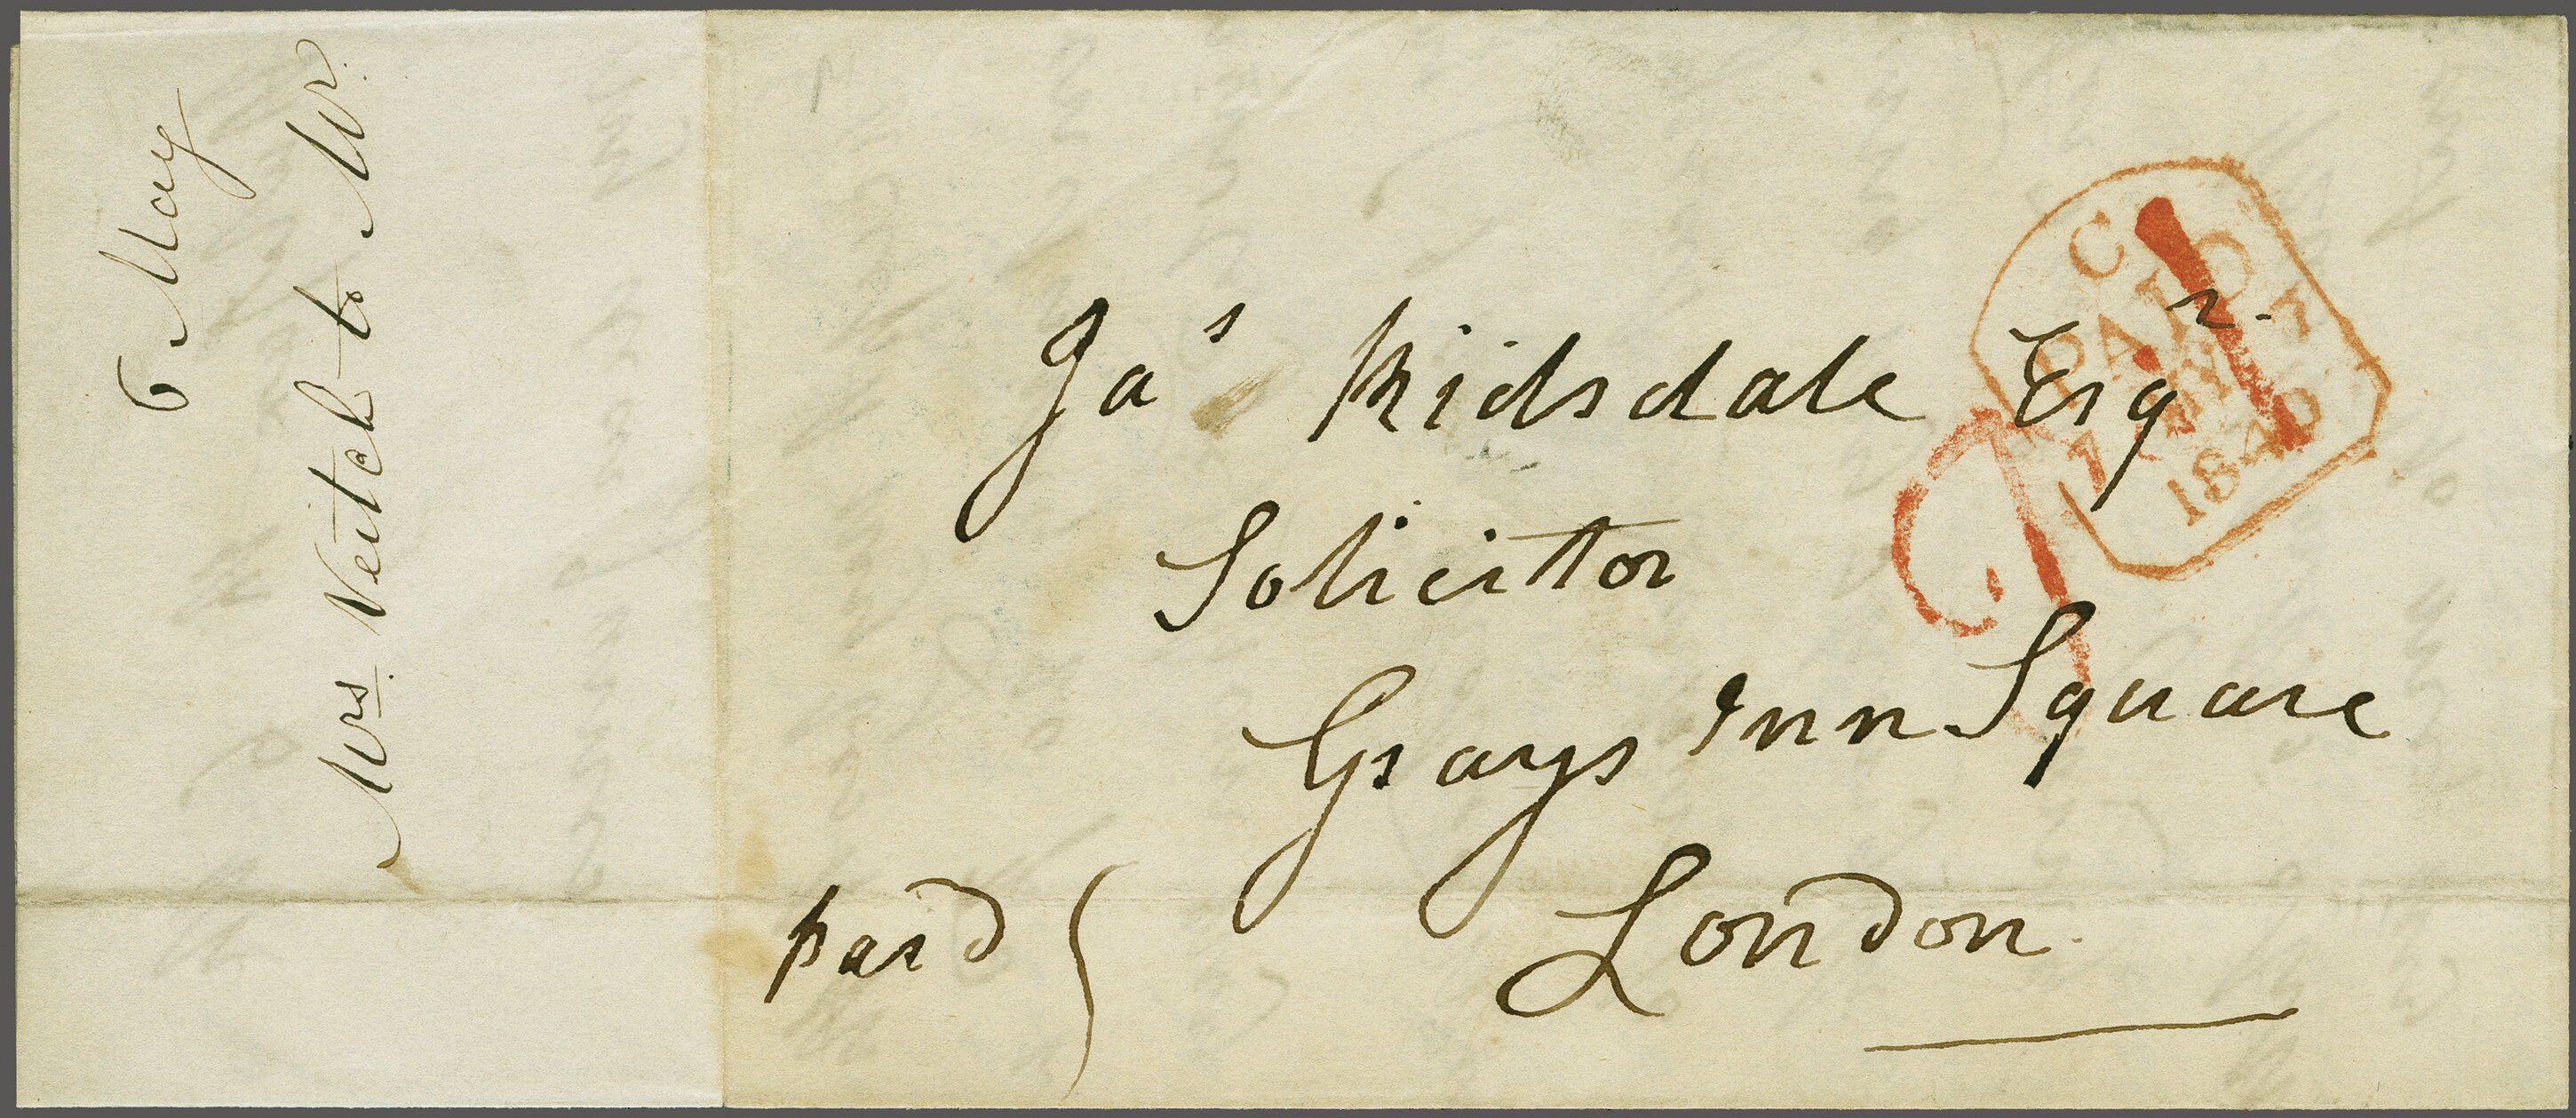 6 May
Mrs. Veitch to Mr.
Jas Ridsdale Esqr.
Solicitor
Grays Inn Square
London.
paid
C
PAID
7 MY 7
1840
1